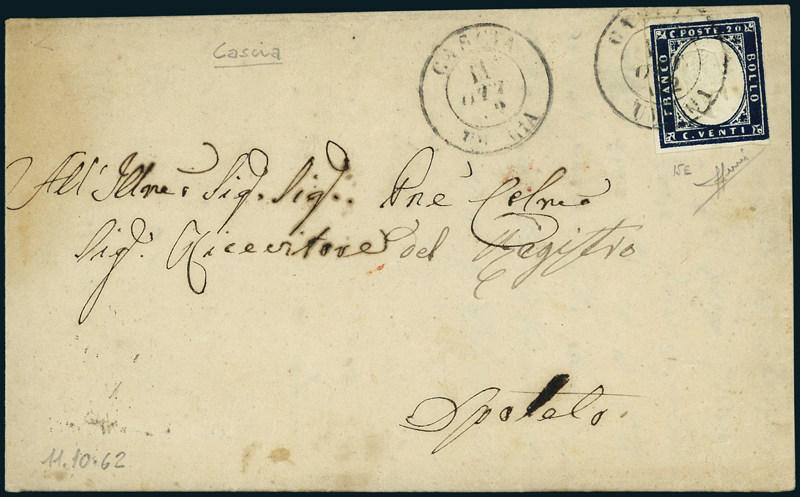 Cascia
CASCIA
11
OTT
C. POSTE. 20
FRANCO
BOLLO
C. VENTI
15E
All' Illmo Sig. Sig.. Pne Colmo
Sig. Ricevitore del Registro
Spoleto.
11.10.62